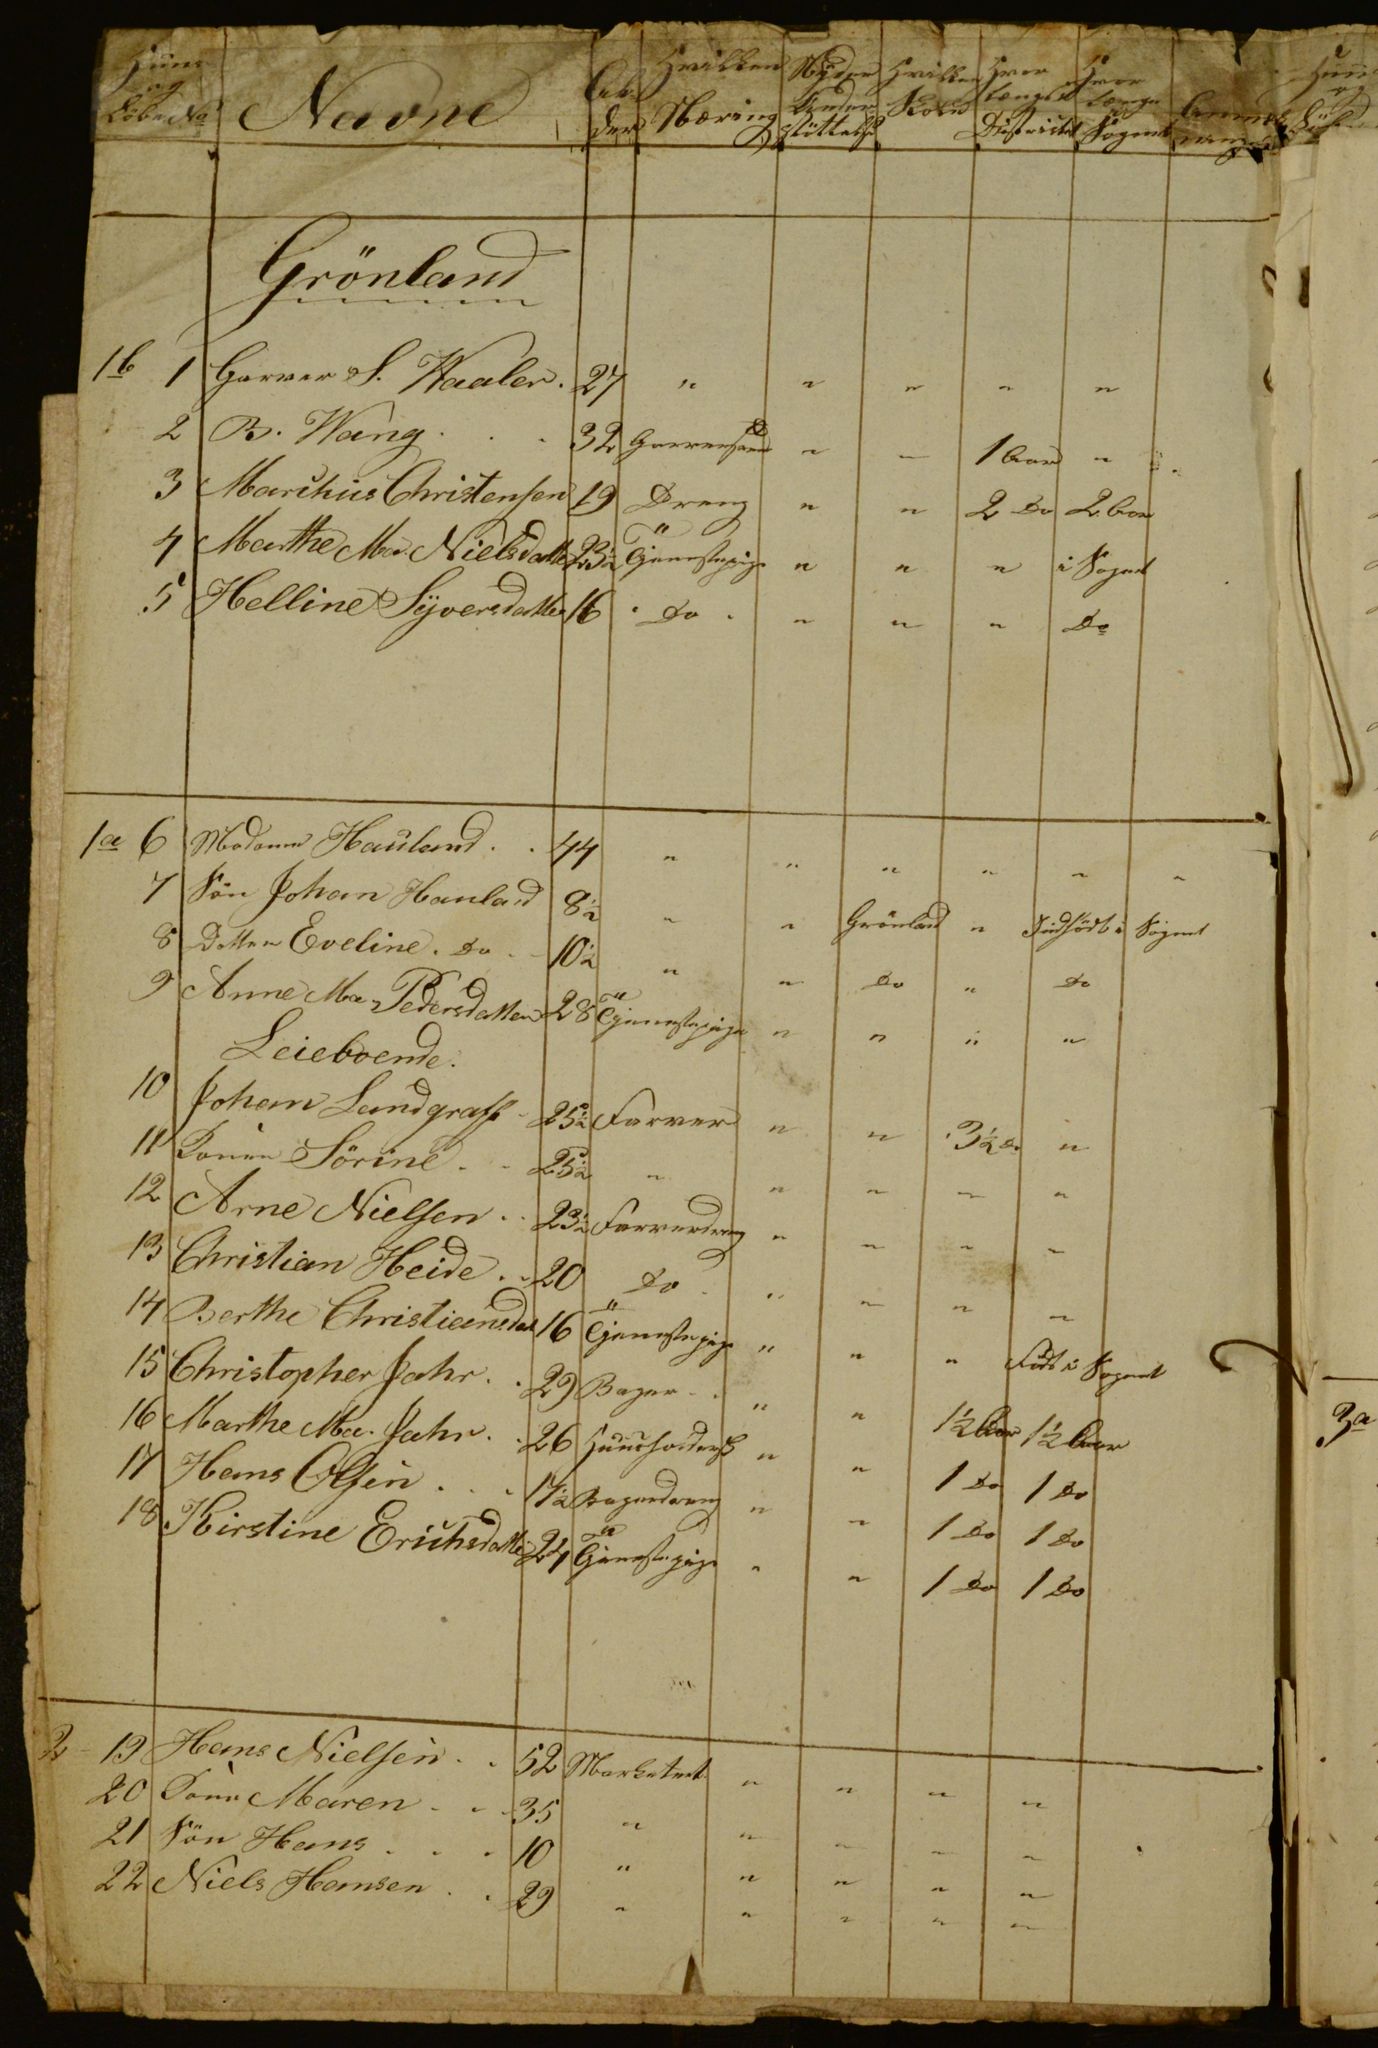 Huus og Löbe No | Navne | Alder | Hvilken Næring | Nyder Understöttelse | Hvilken Skole | Hvor længe i Districtet | Hvor længe i Sognet
Grönland
1b 1 Garver S. Waaler. 27 " " " " "
2 B. Wang . . . 32 Garversvend " " 1 Aar "
3 Marthius Christensen 19 Dreng " " 2 Do 2 Aar
4 Marthe Ma. Nielsdatter 23½ Tjenestepige " " " i Sognet
5 Helline Syversdatter 16 Do " " " Do
1a 6 Madame Hauland . . 44 " " " " " "
7 Sön Johan Hauland 8½ " " Grönland " Indfödt i Sognet
8 Datter Eveline. Do 10½ " " Do " Do
9 Anne Ma. Pedersdatter 28 Tjenestepige " " " "
Leieboende.
10 Johan Landgraff 25½ Farver " " 3½ Do "
11 Konen Sörine . . 25½ " " " " "
12 Arne Nielsen . . 23½ Farverdreng " " " "
13 Christian Heide . . 20 Do " " " "
14 Berthe Christiansdat 16 Tjenestepige " " " Födt i Sognet
15 Christopher Jahr . . 29 Bager . . " " 1½ Aar 1½ Aar
16 Marthe Ma. Jahr . . 26 Huusholderske " " 1 Do 1 Do
17 Hans Olsen . . . 17½ Bagerdreng " " 1 Do 1 Do
18 Kirstine Erichsdatter 24 Tjenestepige " " 1 Do 1 Do
2 19 Hans Nielsen . . 52 Marketent. " " " "
20 Kone Maren . . . 35 " " " " "
21 Sön Hans . . . 10 " " " " "
22 Niels Hansen . . 29 " " " " "
3a